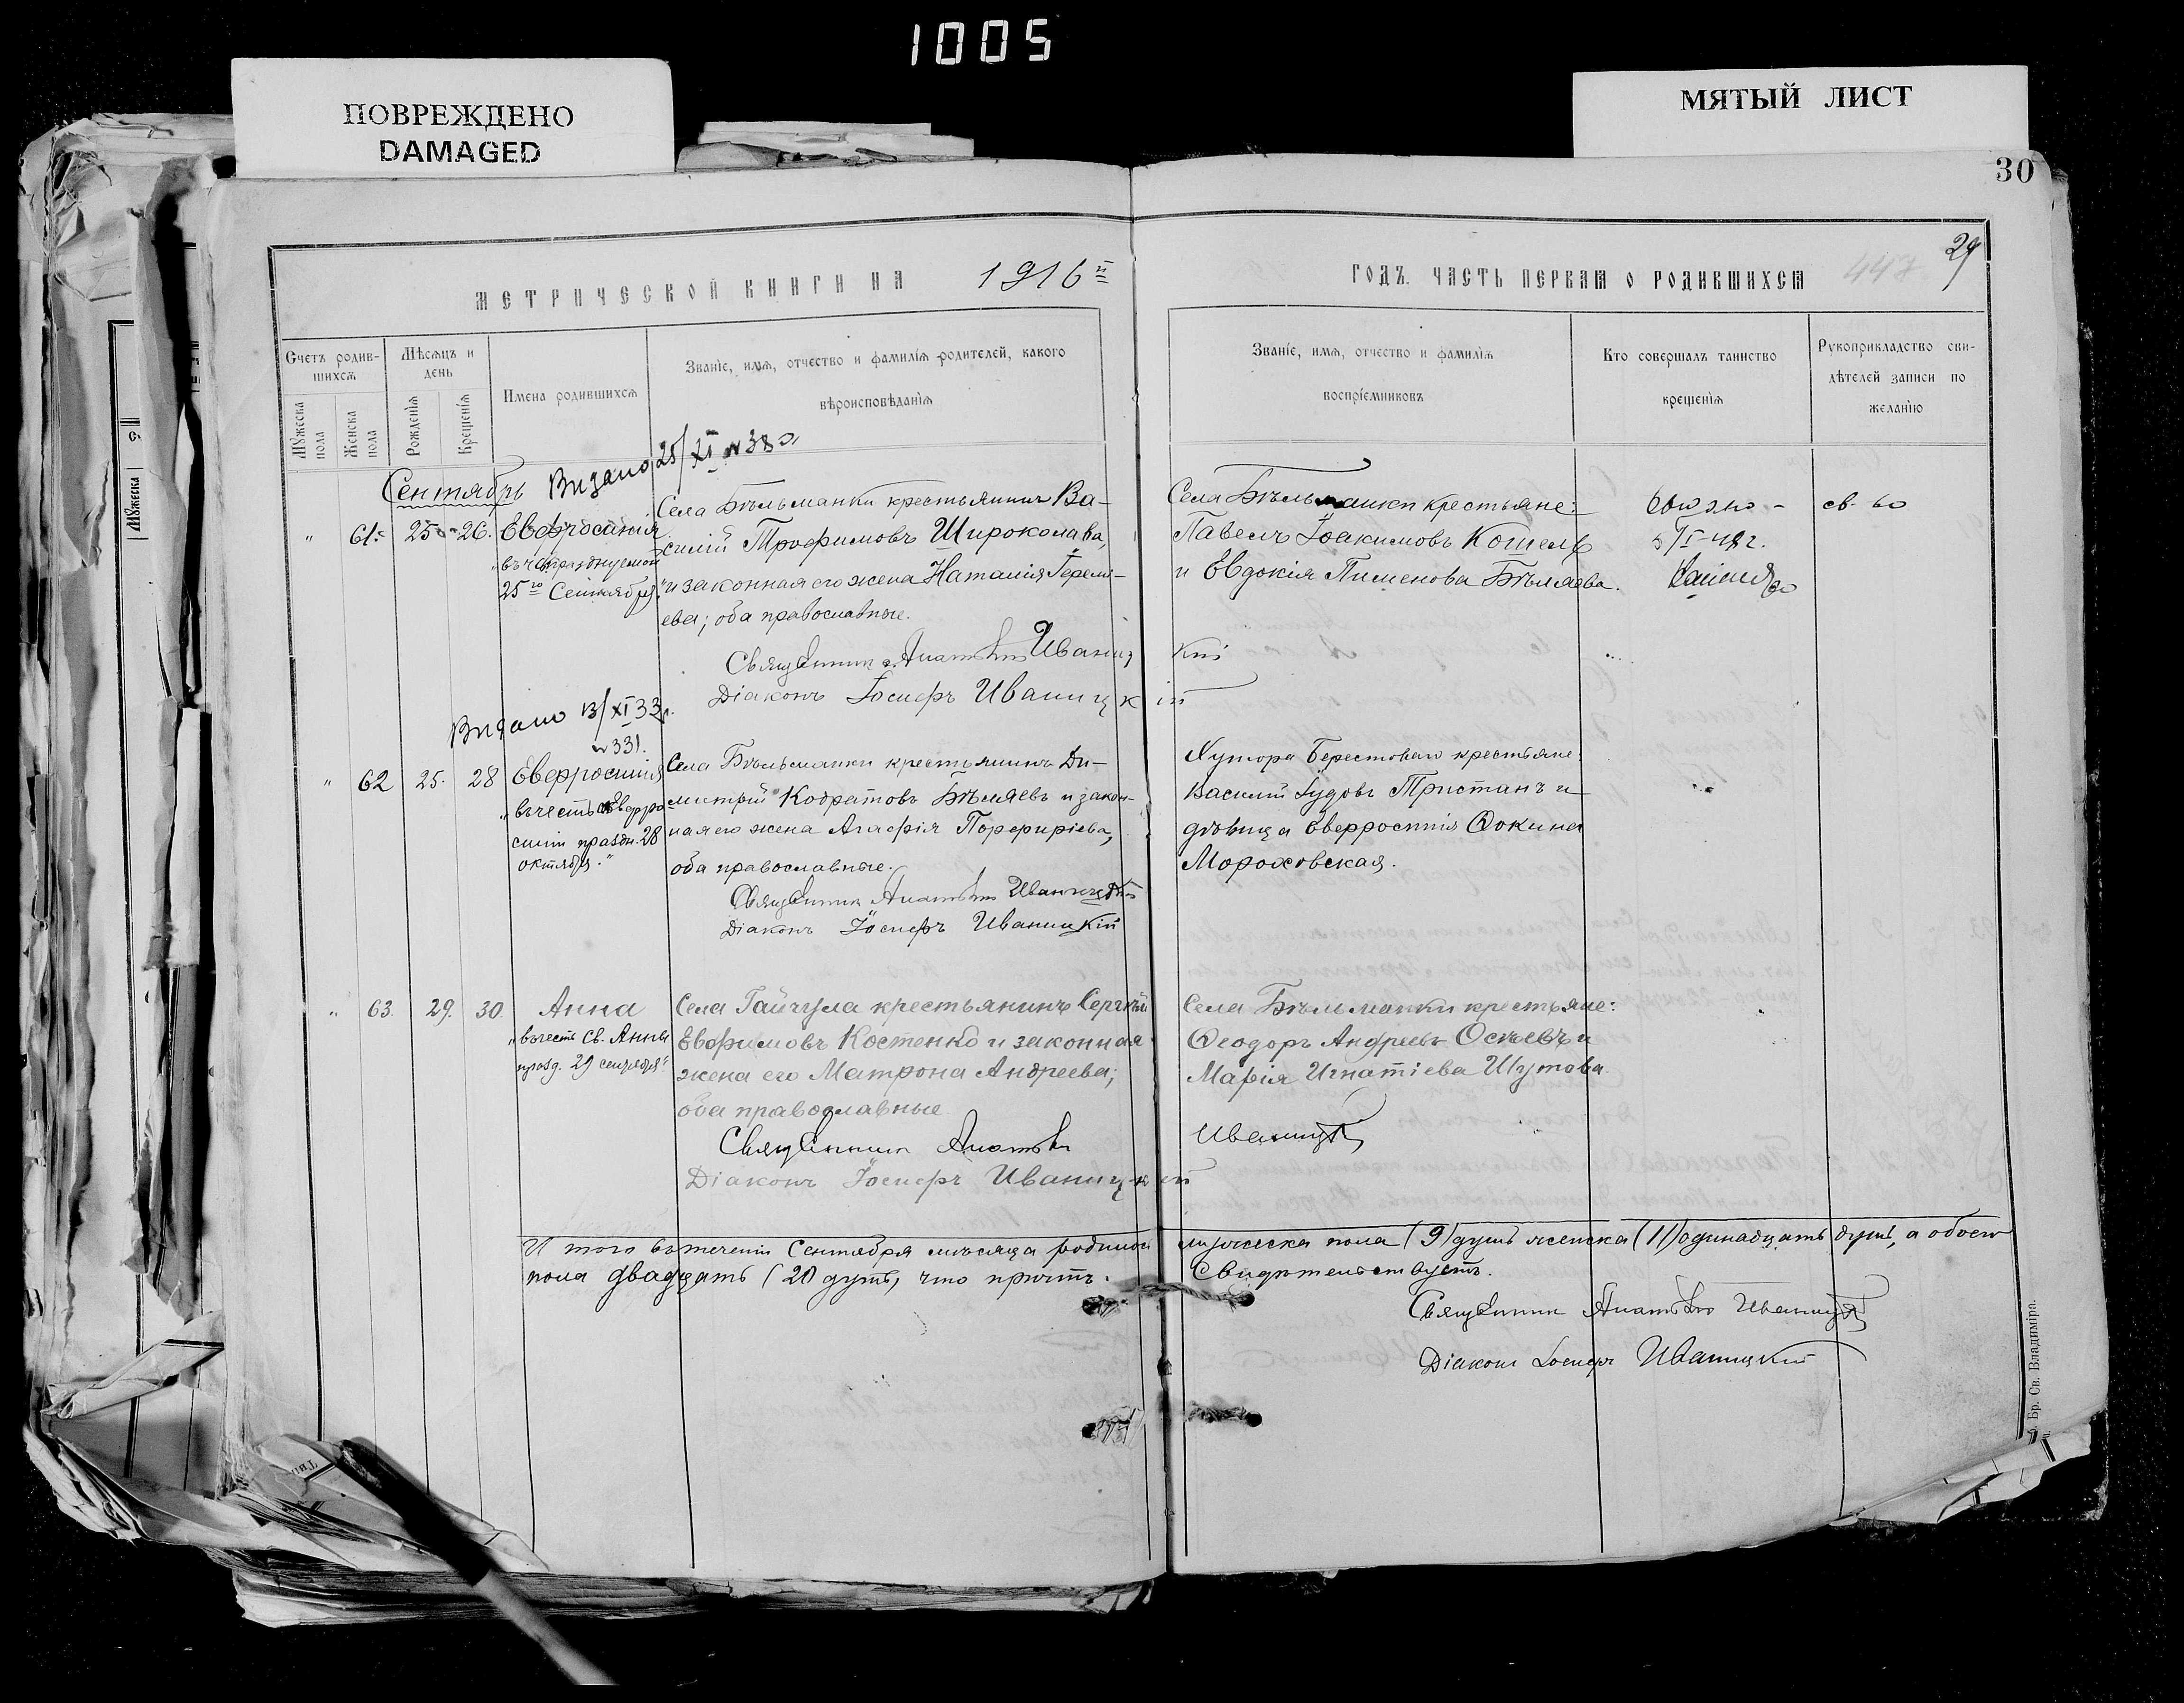 1005
ПОВРЕЖДЕНО
DAMAGED
МЯТЫЙ ЛИСТ
30
29
447
МЕТРИЧЕСКОЙ КНИГИ НА 1916й
ГОДЪ. ЧАСТЬ ПЕРВАЯ О РОДИВШИХСЯ
Счетъ родив-
шихся
Мужеска
пола
Женска
пола
Мѣсяцъ и
день
Рожденія
Крещенія
Имена родившихся
Званіе, имя, отчество и фамилія родителей, какого
вѣроисповѣданія
Званіе, имя, отчество и фамилія
воспріемниковъ
Кто совершалъ таинство
крещенія
Рукоприкладство сви-
дѣтелей записи по
желанію
Мужеска
Сентябрь
Видано 25/XI №38
" 61. 25. 26. Евфросинія
25го Сентября"
Села Бѣльманки крестьянинъ Ва-
силій Трофимовъ Широколава,
и законная его жена Наталія Іеремі-
ева; оба православные.
Священник Анатолій Иваницкій
Діаконъ Іосифъ Иваницкій
Села Бѣльманки крестьяне:
Павелъ Іоакимовъ Кошель
и Евдокія Пименова Бѣляева.
св-во
5/I-48г.
Видано 13/XI 33г.
№331.
" 62 25. 28 Евфросинія
"въ честь св Евфро
синіи праздн. 28
октября."
Села Бѣльманки крестьянинъ Ди-
митрій Кодратовъ Бѣляевъ и закон-
ная его жена Агафія Порфиріева,
оба православные.
Священник Анатолій Иваницкій
Діаконъ Іосифъ Иваницкій
Хутора Берестоваго крестьяне:
Василій Іудовъ Тристанъ и
дѣвица Евфросинія Ѳокина
Мороховская.
" 63. 29. 30. Анна
"въ честь Св. Анны
празд. 29 сентября"
Села Гайчула крестьянинъ Сергѣй
Евфимовъ Костенко и законная
жена его Матрона Андреева;
оба православные
Священник Анатолій Иваницкій
Діаконъ Іосифъ Иваницкій
Села Бѣльманки крестьяне:
Ѳеодоръ Андреевъ Осѣевъ и
Марія Игнатіева Шутова
И того въ теченіи Сентября мѣсяца родилось мужеска пола (9) душъ женска (11) одинадцать душъ, а обоего
пола двадцать (20) душъ, что причтъ Свидѣтельствуетъ.
Священник Анатолій Иваницкій
Діаконъ Іосифъ Иваницкій
Бр. Св. Владиміра.